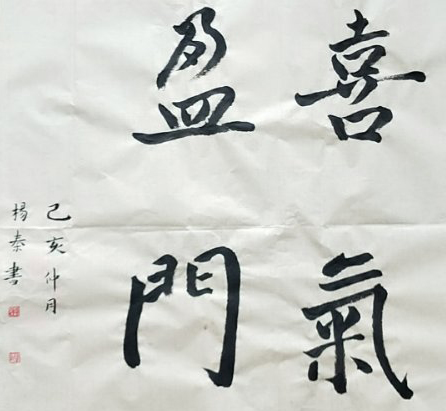 喜氣
盈門
己亥仲月
楊秦書